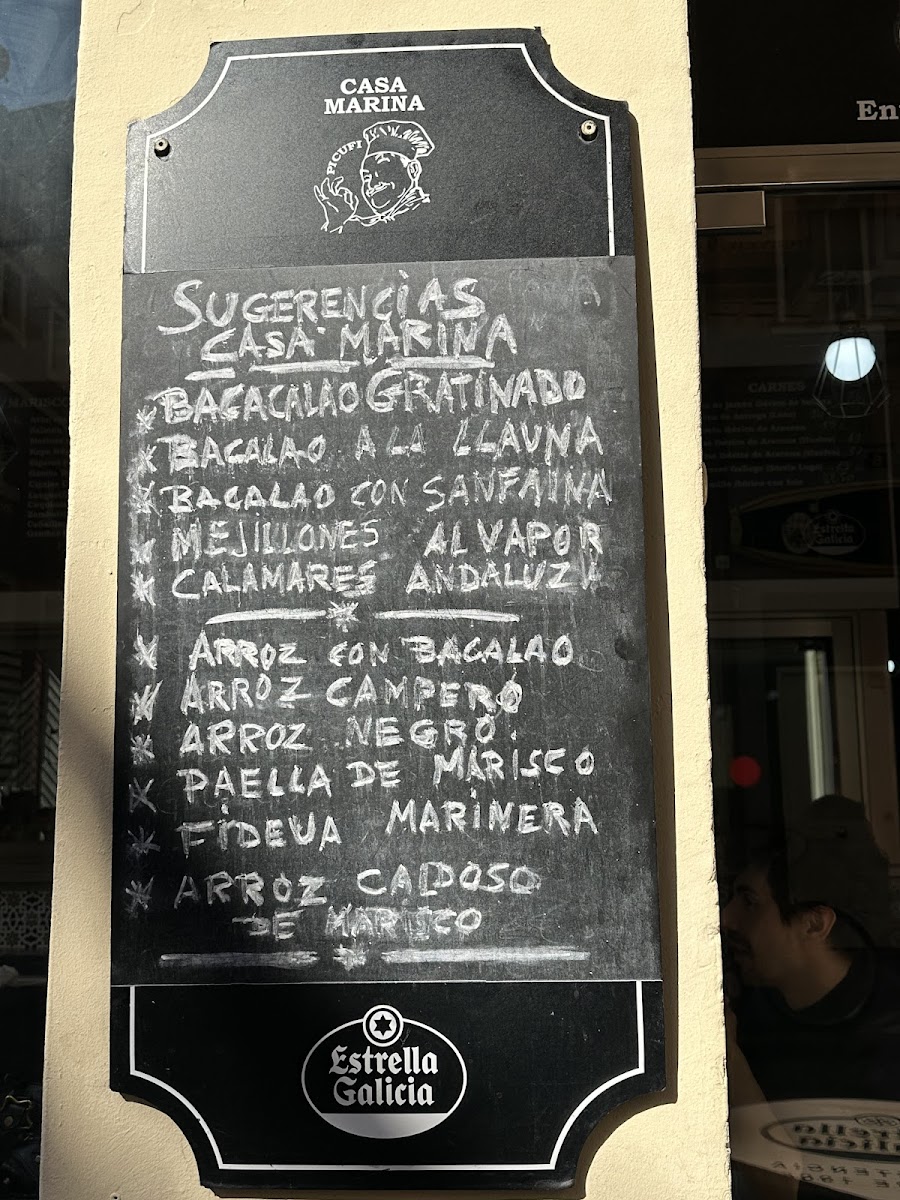 CASA
MARINA
PICUFI
SUGERENCIAS
CASA MARINA
* BACACALAO GRATINADO
* BACALAO A LA LLAUNA
* BACALAO CON SANFAINA
* MEJILLONES AL VAPOR
* CALAMARES ANDALUZA
* ARROZ CON BACALAO
* ARROZ CAMPERO
* ARROZ NEGRO.
* PAELLA DE MARISCO
* FIDEUA MARINERA
* ARROZ CALDOSO
DE MARISCO
Estrella
Galicia
CARNES
Estrella
Galicia